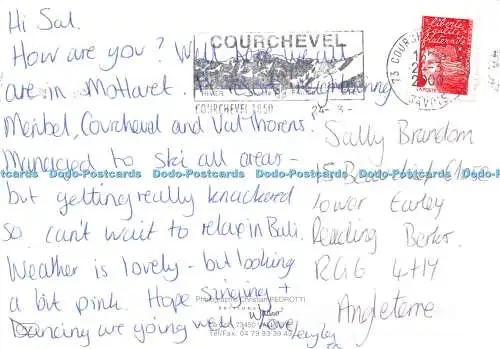 Hi Sal.
How are you? Well
are in Mottaret. A resort neighbouring
Meribel, Courchevel and Val Thorens.
Managed to ski all areas -
but getting really knackered
so can't wait to relax in Bali.
Weather is lovely - but looking
a bit pink. Hope singing +
Dancing are going well
COURCHEVEL
HIVER
COURCHEVEL 1850
24-3-
73 COURCH
2000
SAVOIE
liberté
égalité
fraternité
LA POSTE
Sally Brandom
Close
Lower Earley
Reading Berks.
RG6 4
Angleterre
Dodo-Postcards Dodo-Postcards Dodo-Postcards Dodo-Postcards
Photographe Christian PEDROTTI
Tel/Fax. 04 79